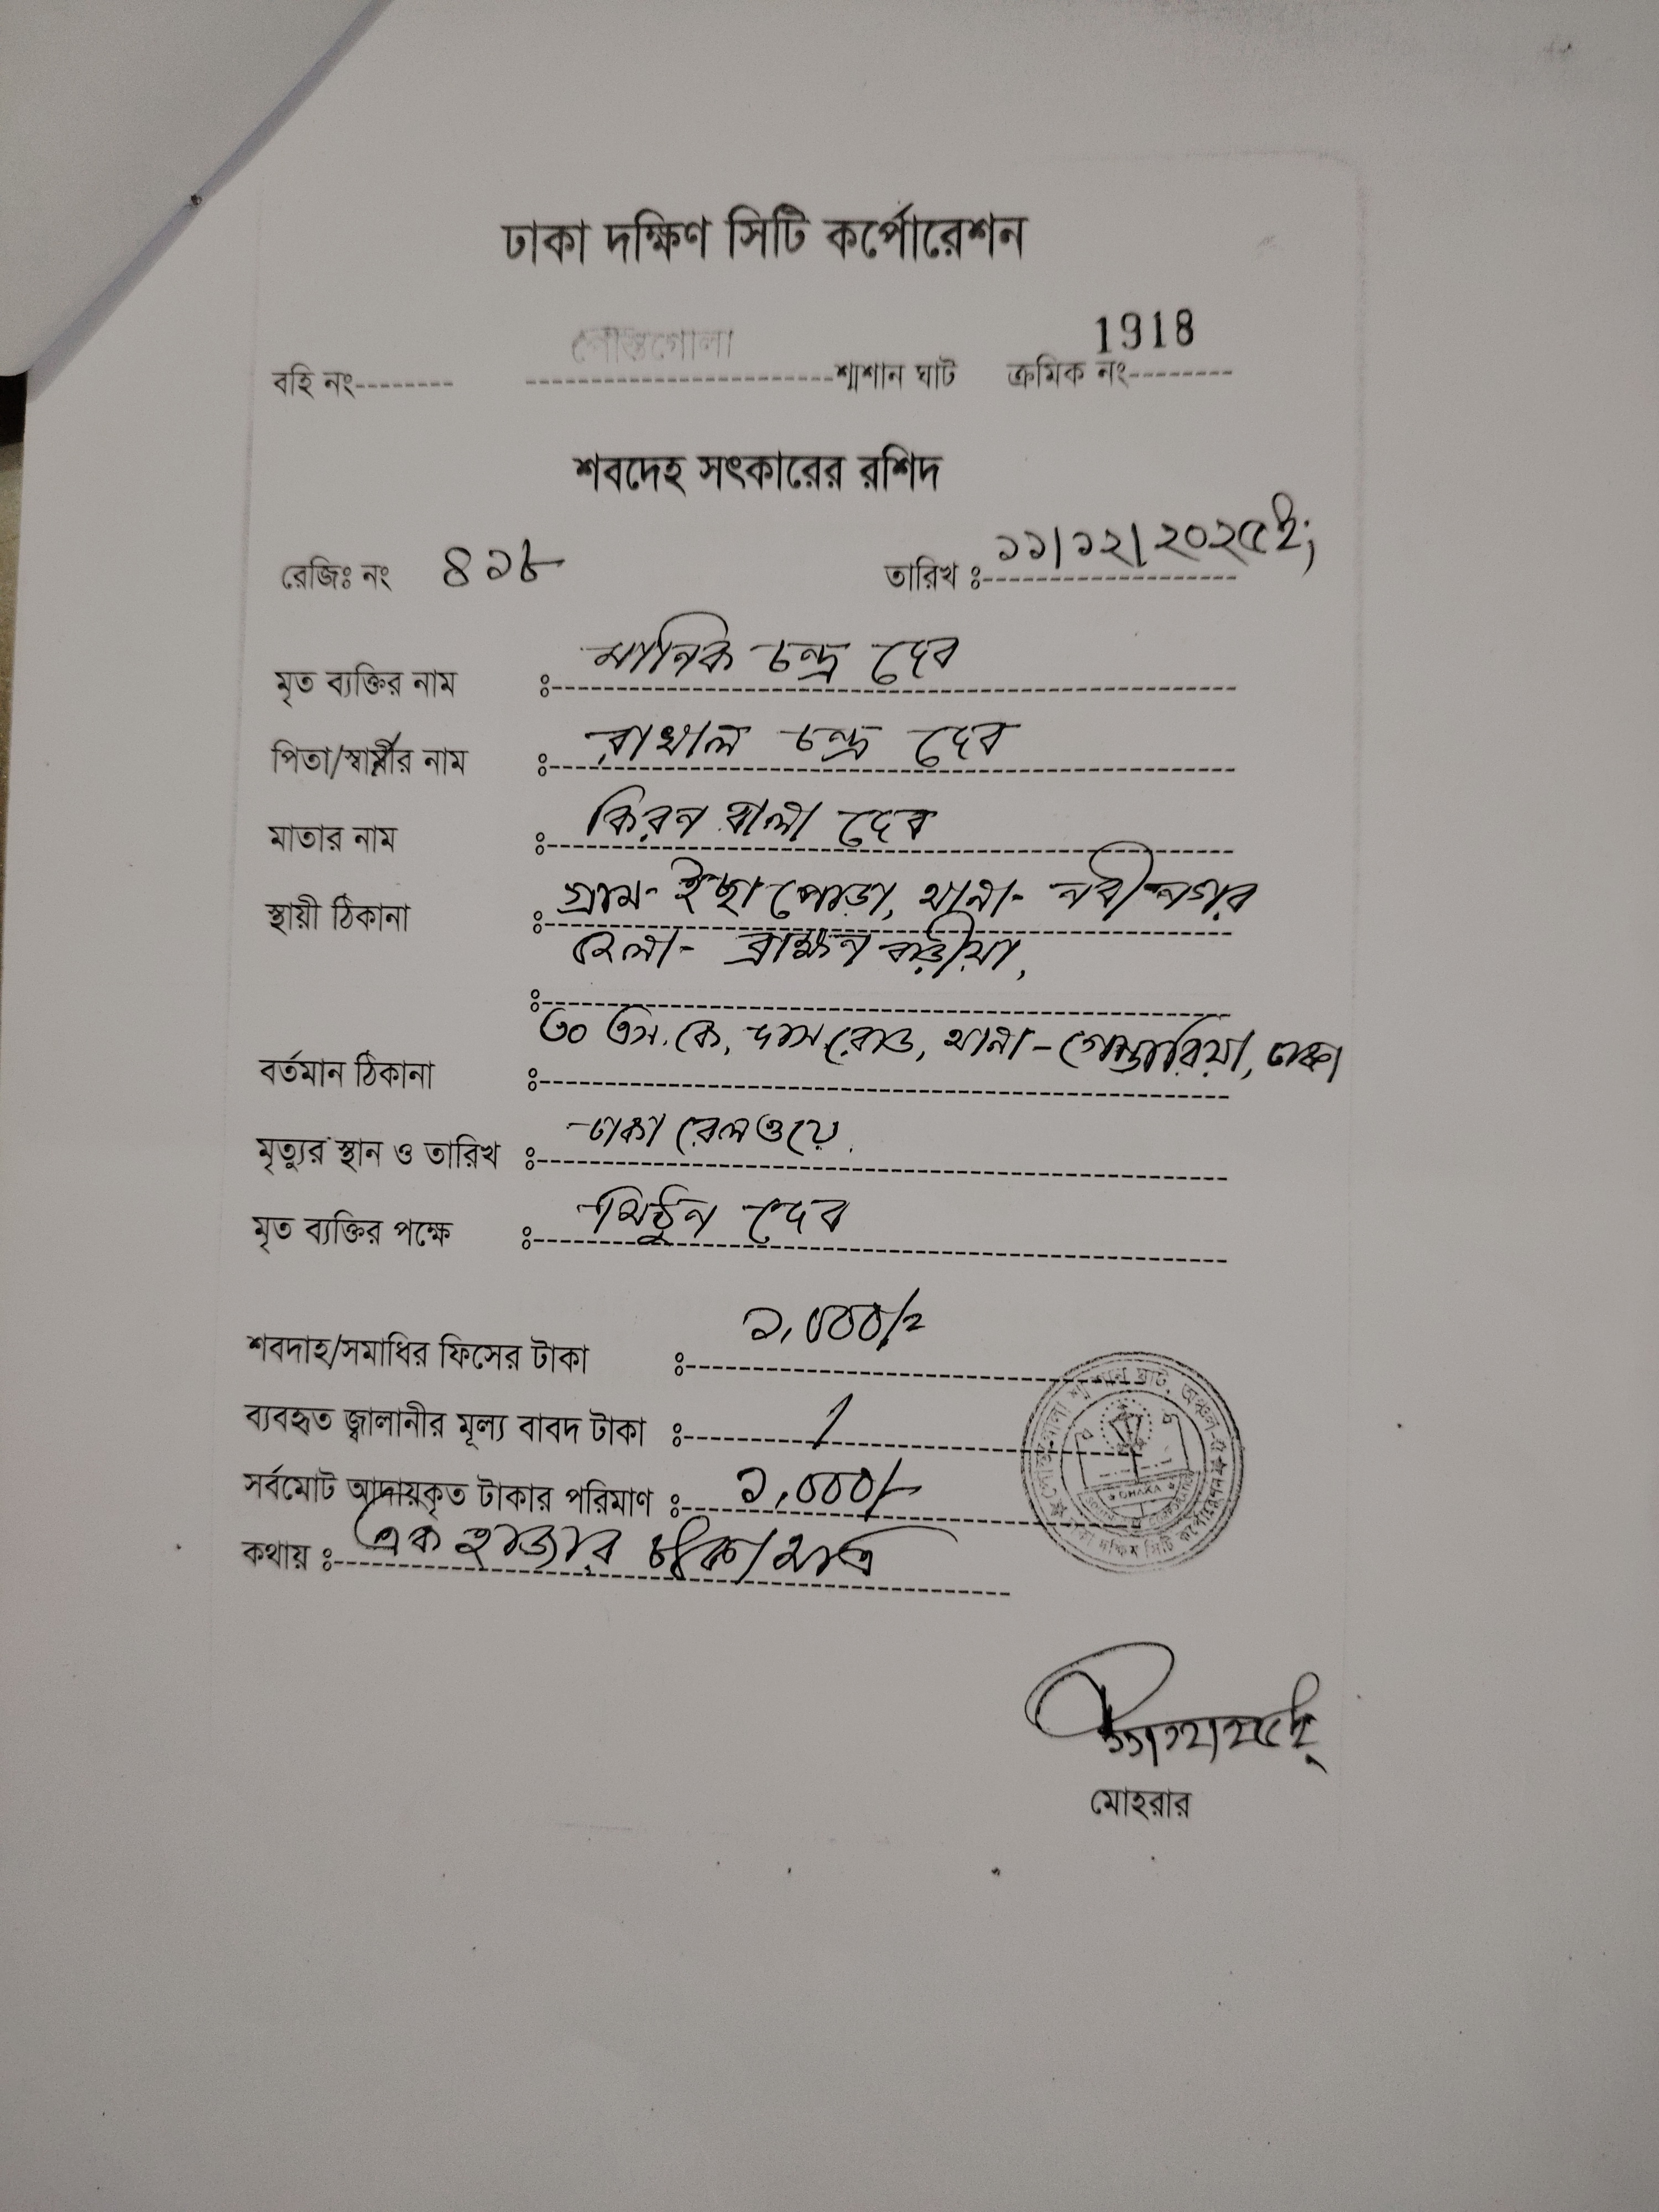 ঢাকা দক্ষিণ সিটি কর্পোরেশন
পোস্তগোলা 1918
বহি নং-------- ----------------------শ্মশান ঘাট ক্রমিক নং--------
শবদেহ সৎকারের রশিদ
রেজিঃ নং ৪১৮ তারিখ ঃ ১১/১২/২০২৫ইং
মৃত ব্যক্তির নাম ঃ মানিক চন্দ্র দেব
পিতা/স্বামীর নাম ঃ রাখাল চন্দ্র দেব
মাতার নাম ঃ কিরন বালা দেব
স্থায়ী ঠিকানা ঃ গ্রাম- ইছা পোড়া, থানা- নবীনগর
জেলা- ব্রাহ্মন বাড়ীয়া,
ঃ
বর্তমান ঠিকানা ঃ ৩০ এস.কে. দাস রোড, থানা-গেন্ডারিয়া, ঢাকা
মৃত্যুর স্থান ও তারিখ ঃ ঢাকা রেলওয়ে.
মৃত ব্যক্তির পক্ষে ঃ মিঠুন দেব
শবদাহ/সমাধির ফিসের টাকা ঃ ১,০০০/=
ব্যবহৃত জ্বালানীর মূল্য বাবদ টাকা ঃ /
সর্বমোট আদায়কৃত টাকার পরিমাণ ঃ ১,০০০/-
কথায় ঃ এক হাজার টাকা মাত্র
পোস্তগোলা শ্মশান ঘাট, অঞ্চল-৫
ঢাকা দক্ষিণ সিটি কর্পোরেশন
DHAKA
SOUTH CITY CORPORATION
১১/১২/২৫ইং
মোহরার